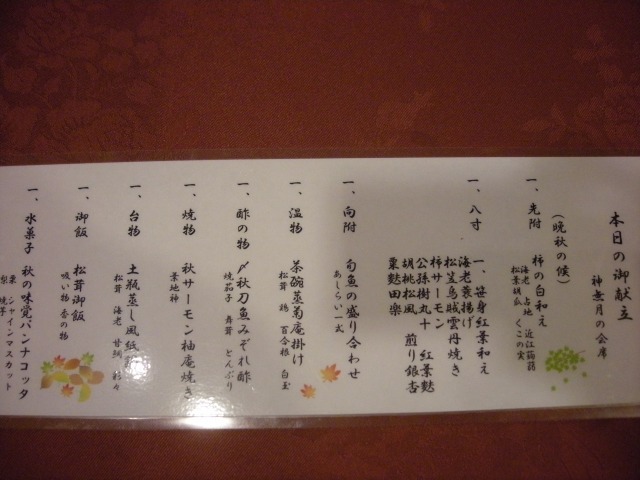 本日の御献立
神無月の会席
(晩秋の候)
一、先附 柿の白和え
海老 占地 近江蒟蒻
松葉胡瓜 くこの実
一、八寸
一、笹身紅葉和え
海老蓑揚げ
松笠烏賊雲丹焼き
柿サーモン 紅葉麩
公孫樹丸十 煎り銀杏
胡桃松風
粟麩田楽
一、向附 旬魚の盛り合わせ
あしらい一式
一、温物 茶碗蒸菊庵掛け
松茸 鶏 百合根 白玉
一、酢の物 〆秋刀魚みぞれ酢
焼茄子 舞茸 とんぶり
一、焼物 秋サーモン柚庵焼き
葉地神
一、台物 土瓶蒸し風紙
松茸 海老 甘鯛 彩々
一、御飯 松茸御飯
吸い物 香の物
一、水菓子 秋の味覚パンナコッタ
栗 シャインマスカット
梨